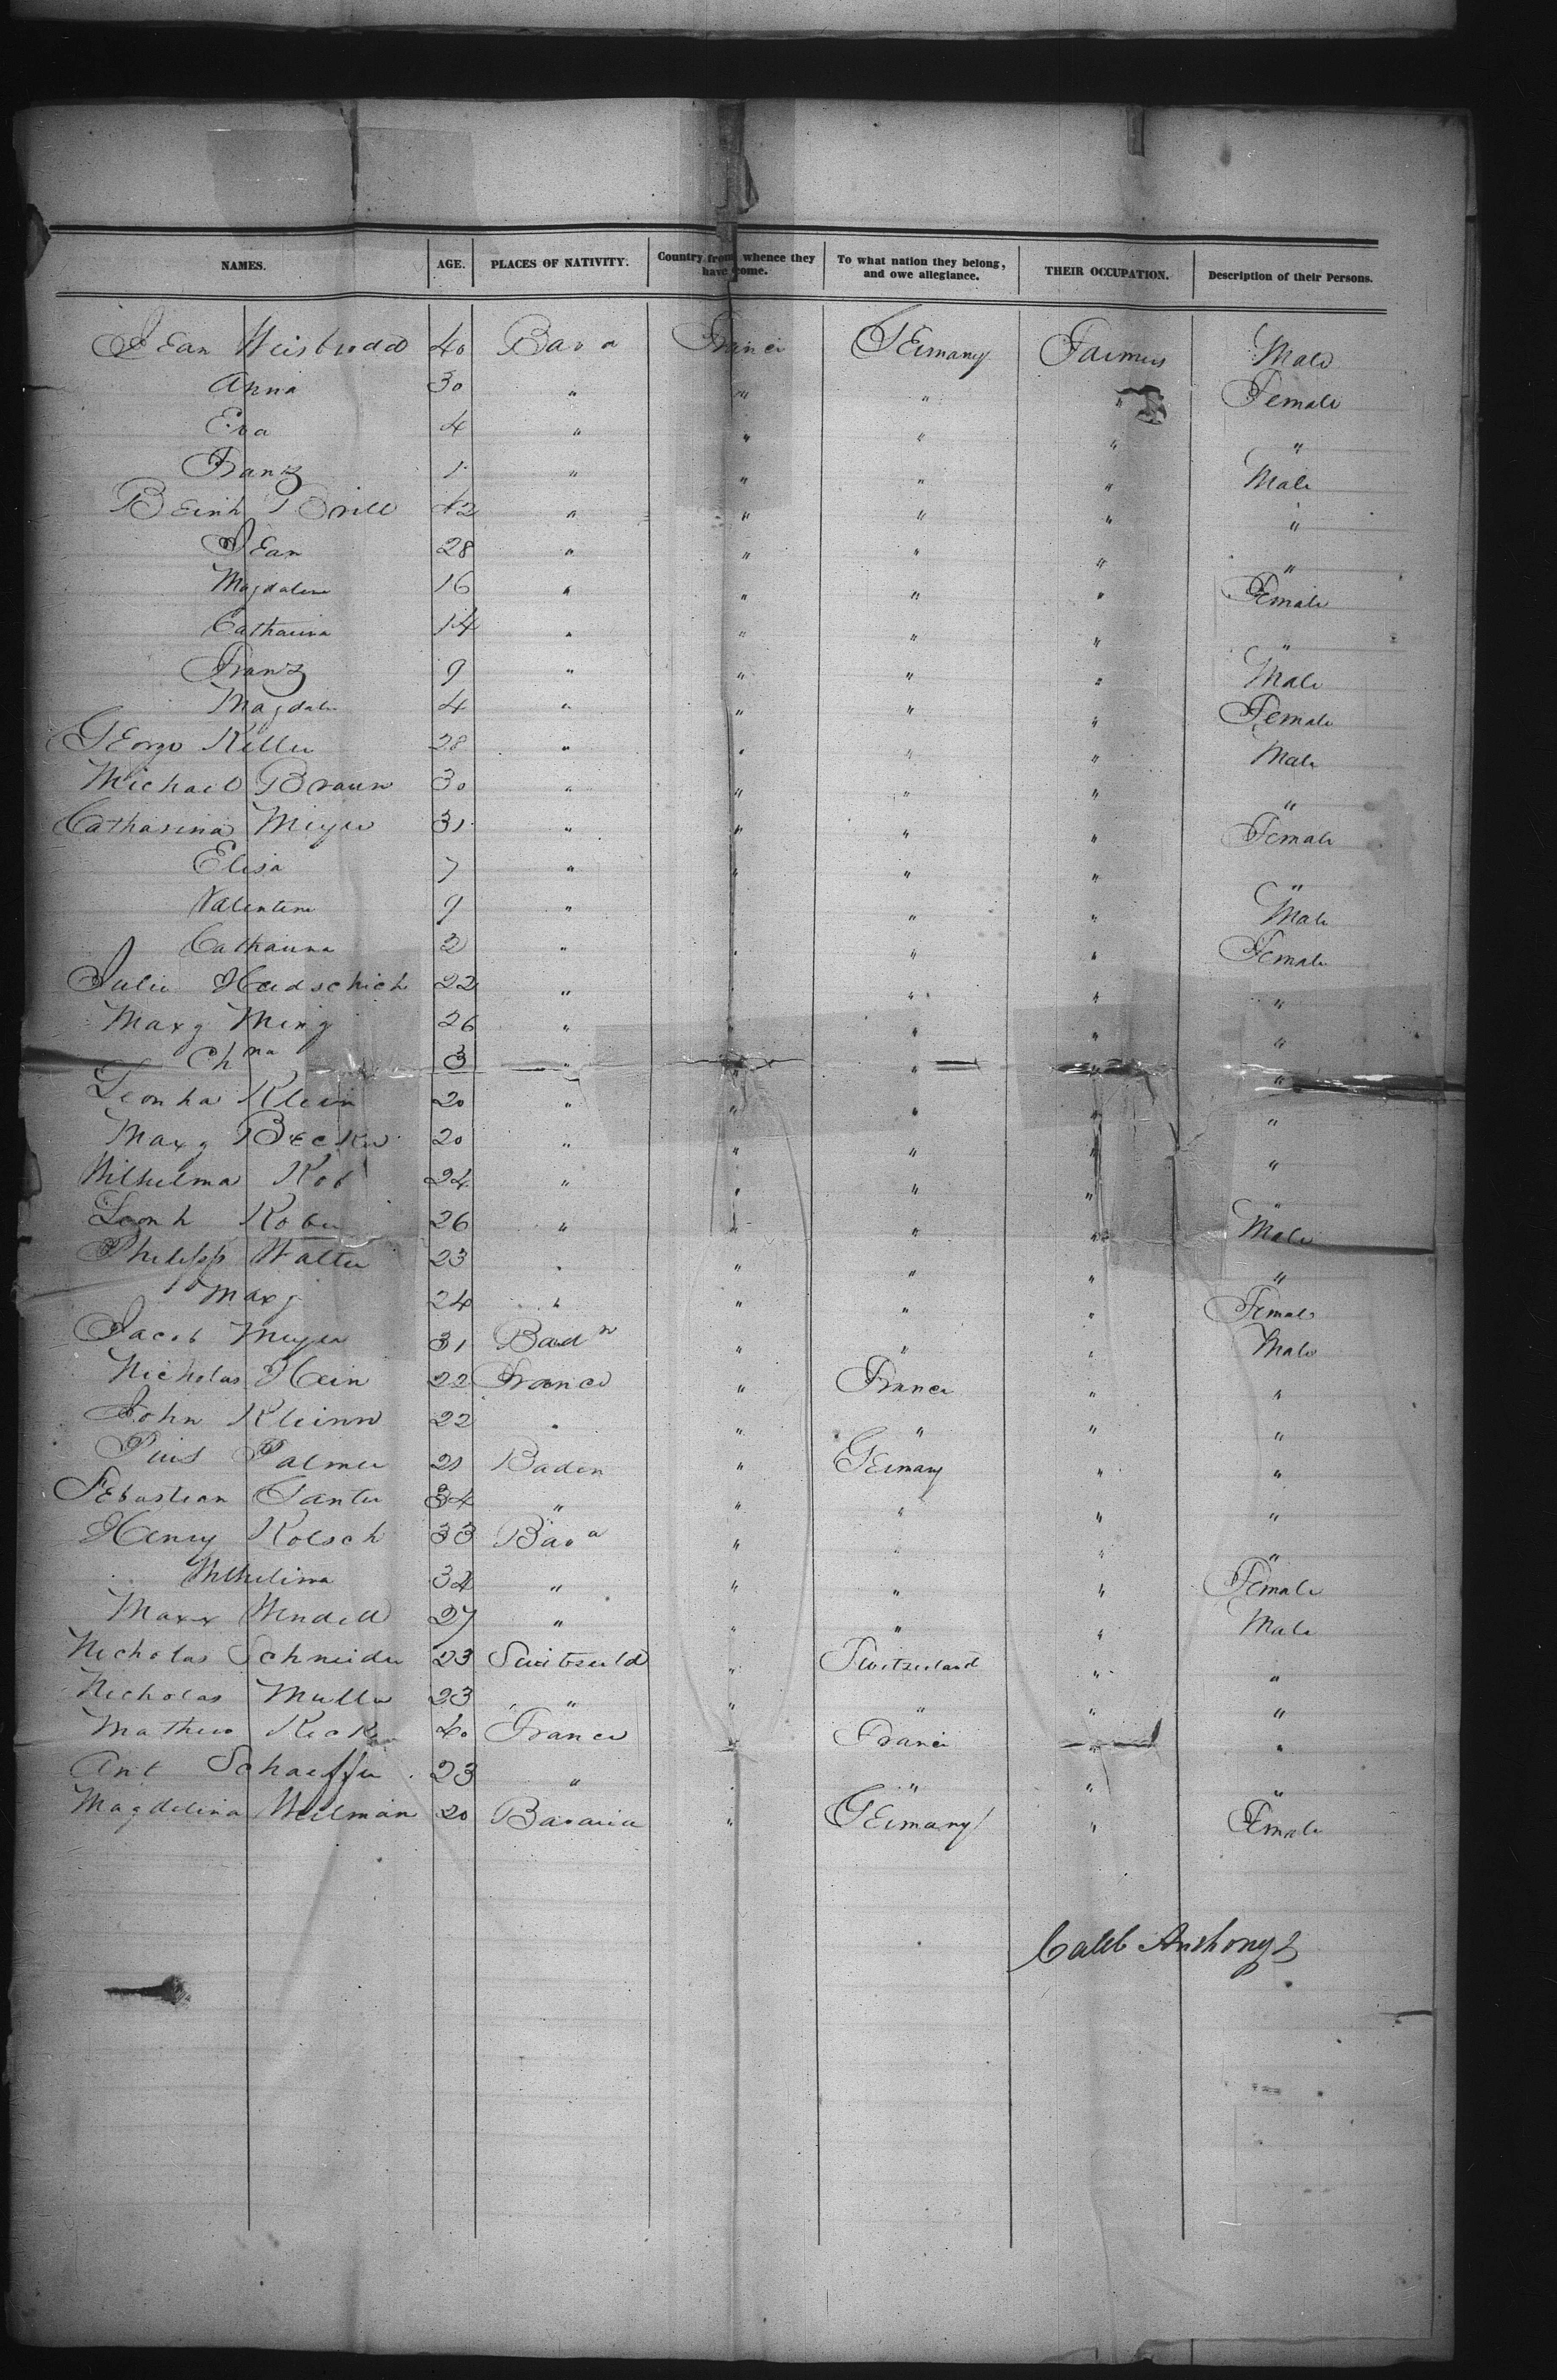 NAMES. AGE. PLACES OF NATIVITY. Country from whence they have come. To what nation they belong, and owe allegiance. THEIR OCCUPATION. Description of their Persons.
Jean Weisbrodd 40 Bav a France Germany Farmers Male
Anna 30 " " " " Female
Eva 4 " " " " "
Franz 1 " " " " Male
Bernh Brill 42 " " " " "
Jean 28 " " " " "
Magdalena 16 " " " " Female
Catharina 14 " " " " "
Franz 9 " " " " Male
Magdale 4 " " " " Female
George Keller 28 " " " " Male
Michael Braun 30 " " " " "
Catharina Meyer 31 " " " " Female
Elisa 7 " " " " "
Valentine 9 " " " " Male
Catharina 2 " " " " Female
Julie Heidschich 22 " " " " "
Marg Ming 26 " " " " "
Ch na 3 " " " " "
Leonha Klein 20 " " " " "
Marg Becker 20 " " " " "
Wilhelma Kob 24 " " " " "
Leonh Kober 26 " " " " Male
Philipp Walter 23 " " " " "
Marg 24 " " " " Female
Jacob Meyer 31 Bad n " " " Male
Nicholas Hein 22 France " France " "
John Kleinn 22 " " " " "
Pius Palmer 21 Baden " Germany " "
Sebastian Ganter 34 " " " " "
Henry Kolsch 33 Bav a " " " "
Wilhelima 34 " " " " Female
Marx Wendell 27 " " " " Male
Nicholas Schneider 23 Switzerld " Switzerland " "
Nicholas Muller 23 " " " " "
Mathew Keck 40 France " France " "
Ant Schaeffer 23 " " " " "
Magdelina Weilman 20 Bavaria " Germany " Female
Caleb Anthony 2